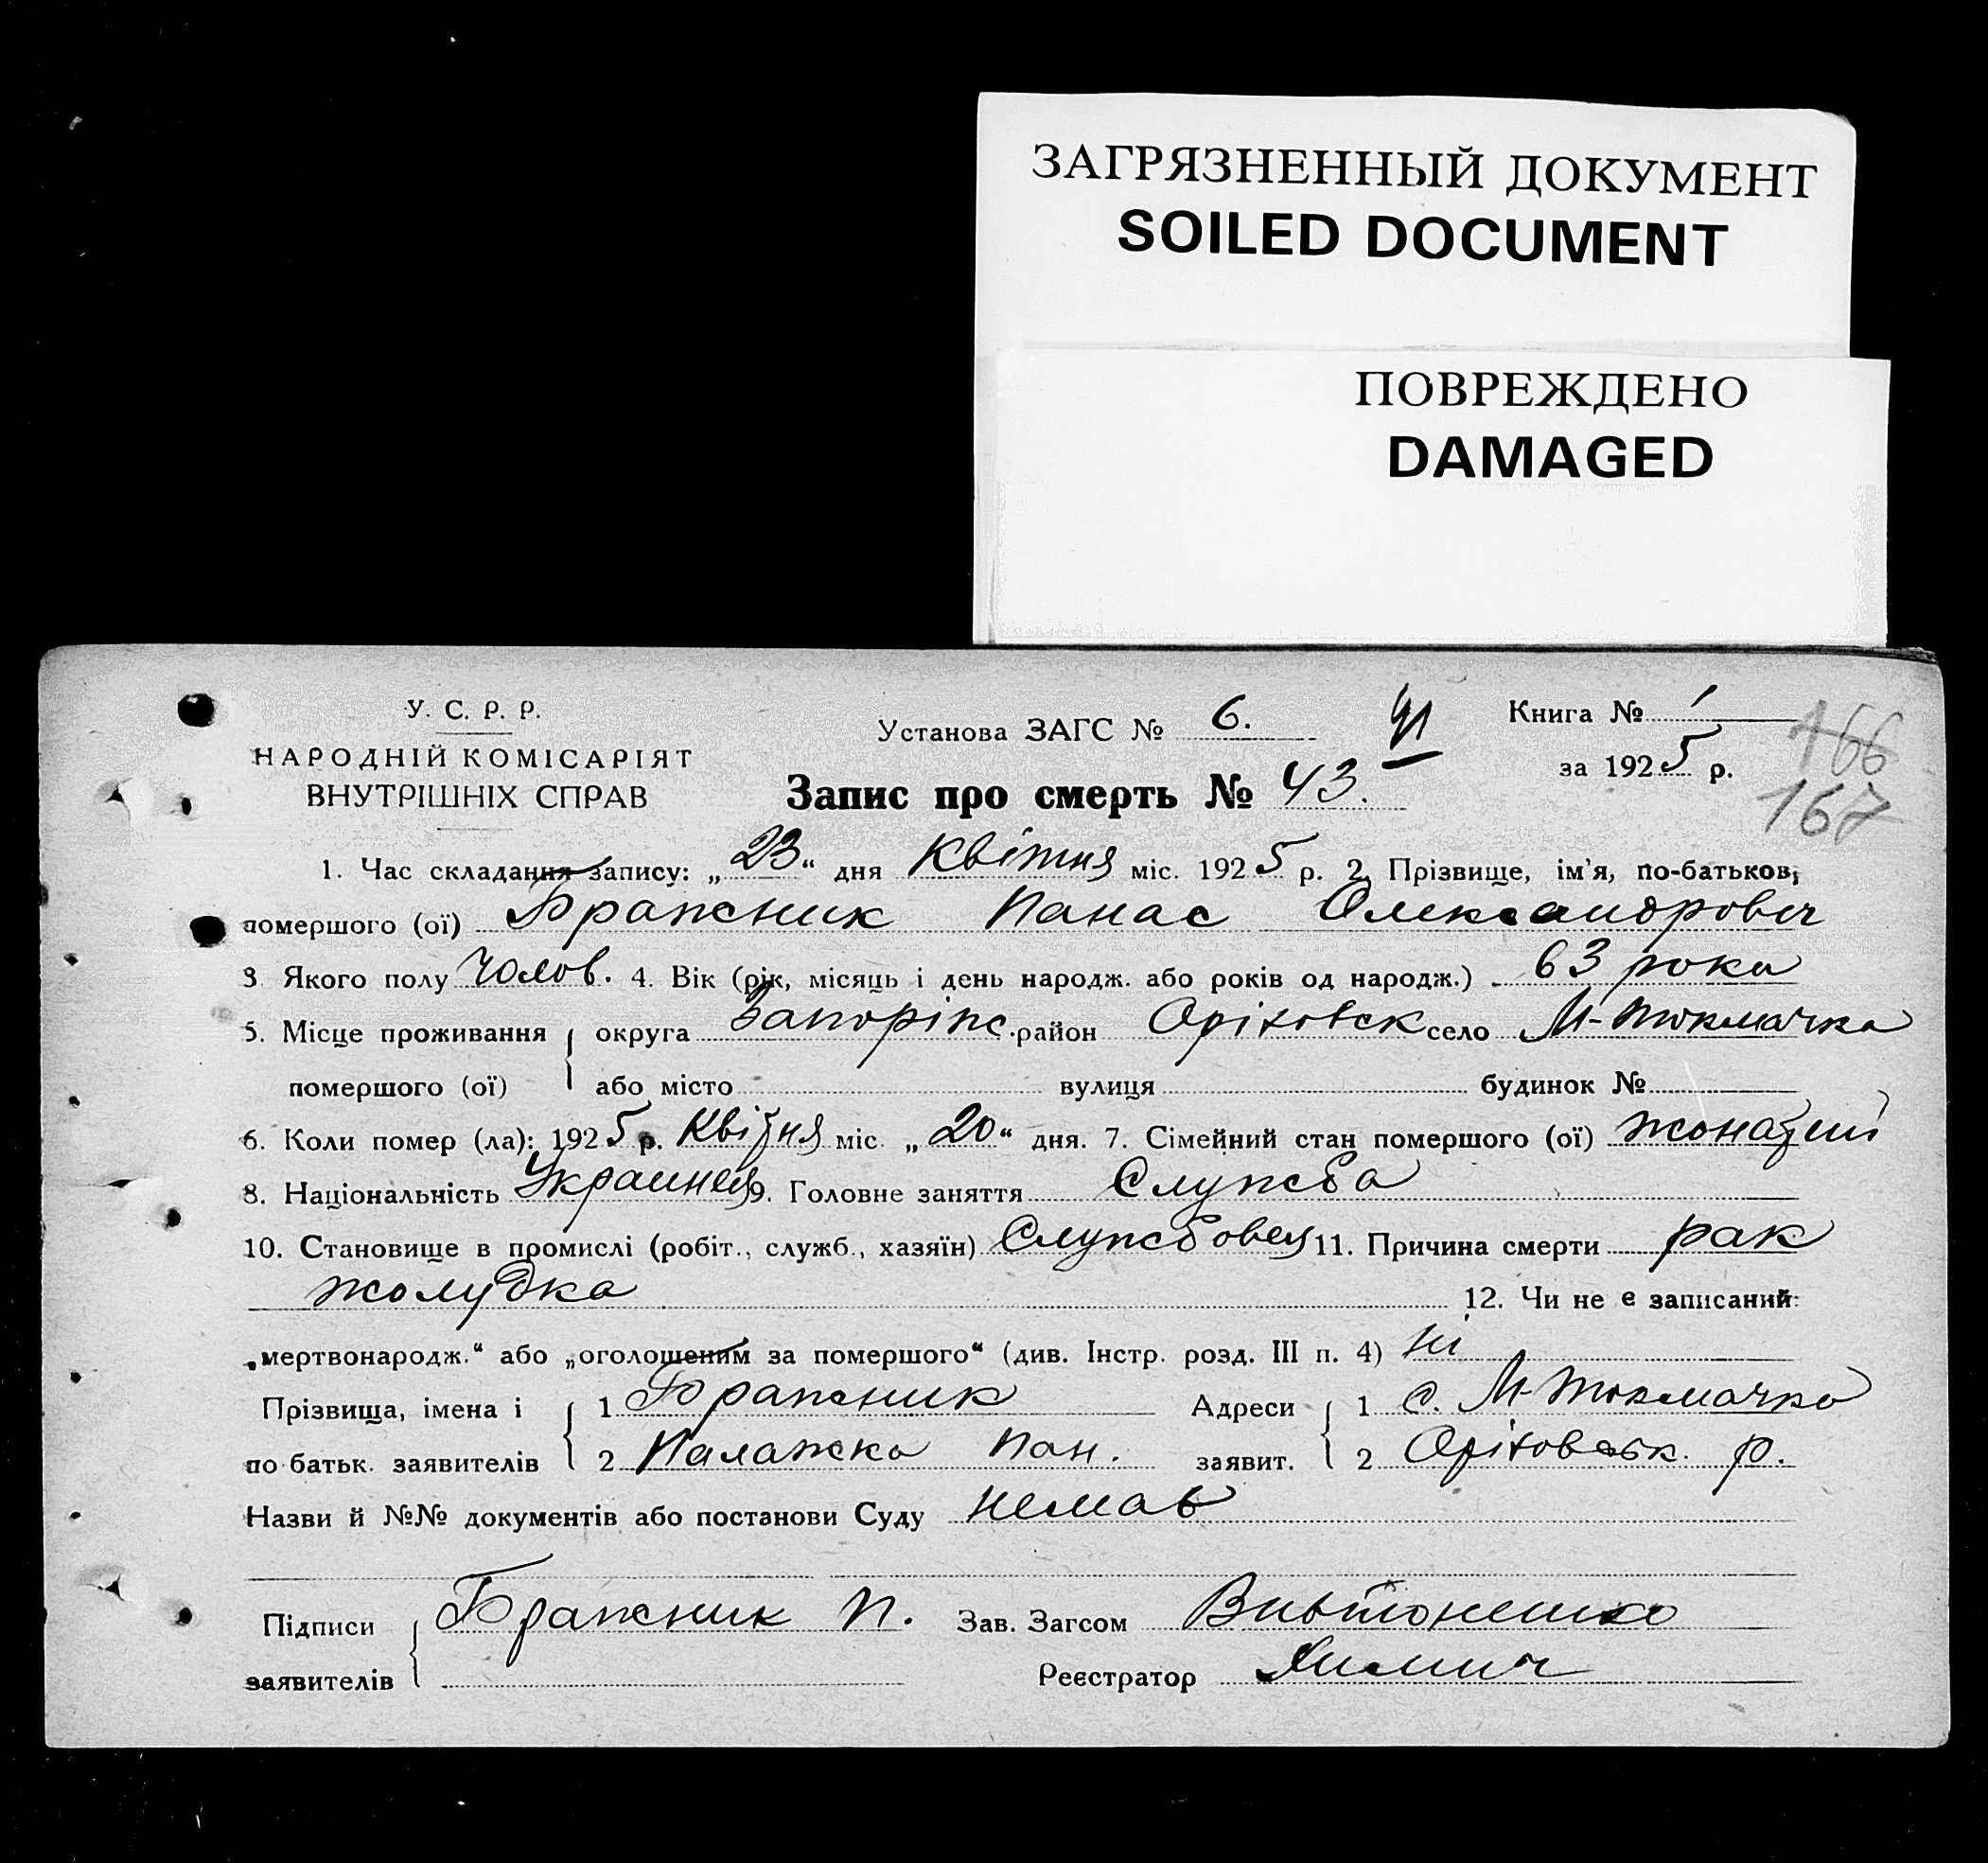 ЗАГРЯЗНЕННЫЙ ДОКУМЕНТ
SOILED DOCUMENT
ПОВРЕЖДЕНО
DAMAGED
У. С. Р. Р.
НАРОДНІЙ КОМІСАРІЯТ
ВНУТРІШНІХ СПРАВ
Установа ЗАГС № 6.
91
Книга № 1
за 1925 р.
166
167
Запис про смерть № 43.
1. Час складання запису: „23“ дня Квітня міс. 1925 р. 2. Прізвище, ім'я, по-батькові
помершого (ої) Бражник Панас Олександрович
3 Якого полу Чолов. 4. Вік (рік, місяць і день народж. або років од народж.) 63 роки
5. Місце проживання округа Запоріж. район Оріховск село М-Токмачка
помершого (ої) або місто вулиця будинок №
6. Коли помер (ла): 1925 р. Квітня міс. „20“ дня. 7. Сімейний стан помершого (ої) жонатий
8. Національність 9. Головне заняття Служба
10. Становище в промислі (робіт., служб., хазяїн) 11. Причина смерти рак
жолудка 12. Чи не є записаний:
„мертвонародж.“ або „оголошеним за помершого“ (див. Інстр. розд. III п. 4) ні
Прізвища, імена і 1 Бражник Адреси 1 с. М-Токмачка
по батьк. заявителів 2 Палажка Пан. заявит. 2 Оріховськ. р.
Назви й №№ документів або постанови Суду немає
Підписи Бражник П. Зав. Загсом
заявителів Реєстратор